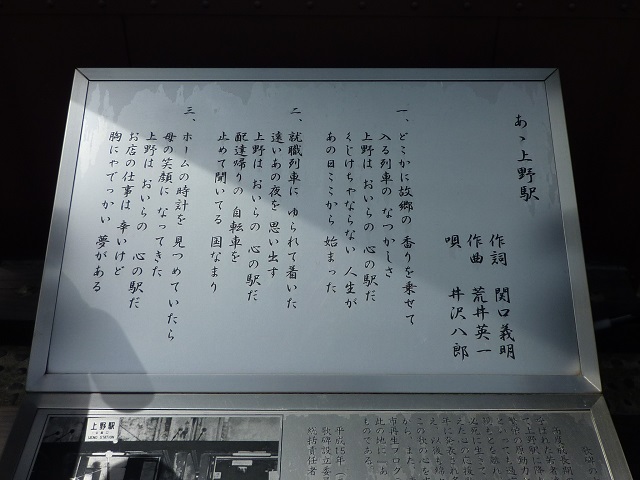 あゝ上野駅
作詞 関口義明
作曲 荒井英一
唄 井沢八郎
一、どこかに故郷の 香りを乗せて
入る列車の なつかしさ
上野は おいらの 心の駅だ
くじけちゃならない 人生が
あの日ここから 始まった
二、就職列車に ゆられて着いた
遠いあの夜を 思い出す
上野は おいらの 心の駅だ
配達帰りの 自転車を
止めて聞いてる 国なまり
三、ホームの時計を 見つめていたら
母の笑顔に なってきた
上野は おいらの 心の駅だ
お店の仕事は 辛いけど
胸にゃでっかい 夢がある
上野駅
UENO STATION
平成15年
歌碑設立委
総括責任者